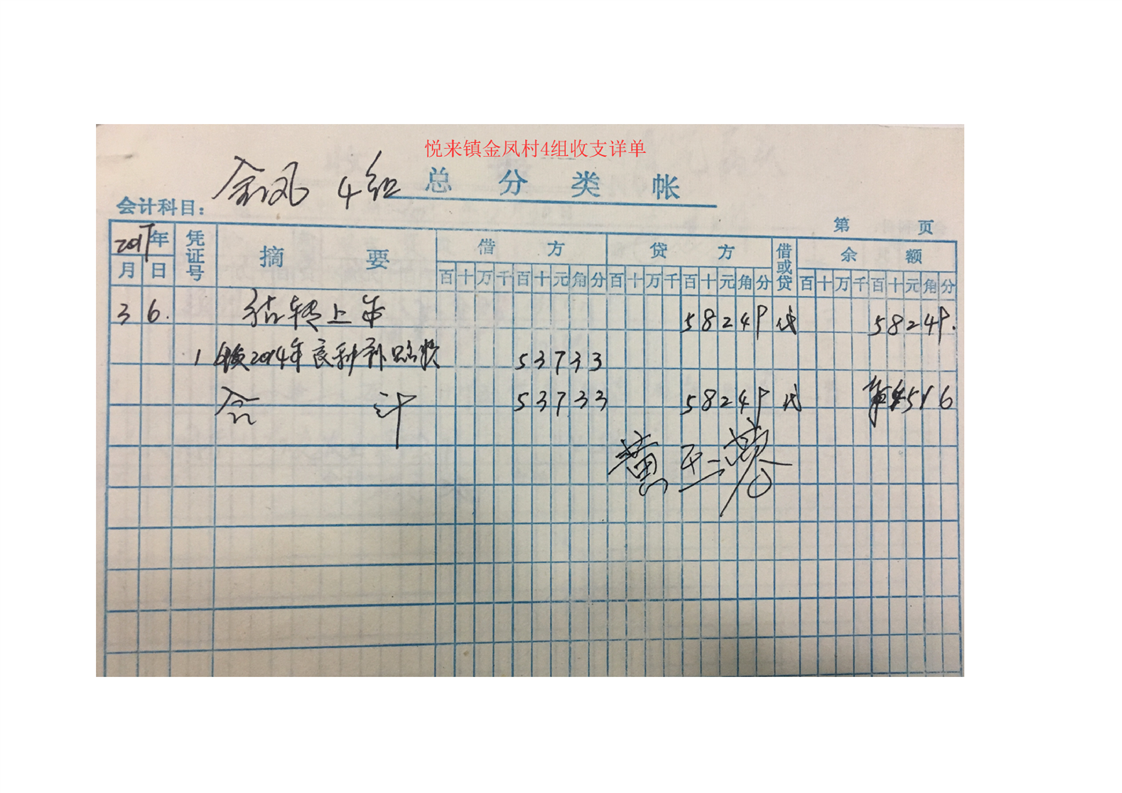 悦来镇金凤村4组收支详单
金凤 4组 总分类帐
会计科目：
第 页
年 凭证号 摘要 借方 贷方 借或贷 余额
月 日 百十万千百十元角分 百十万千百十元角分 百十万千百十元角分
3 6. 结转上年 58249 贷 58249.
1 2014年良种补贴款 53733
合计 53733 58249 贷 4516
黄玉蓉